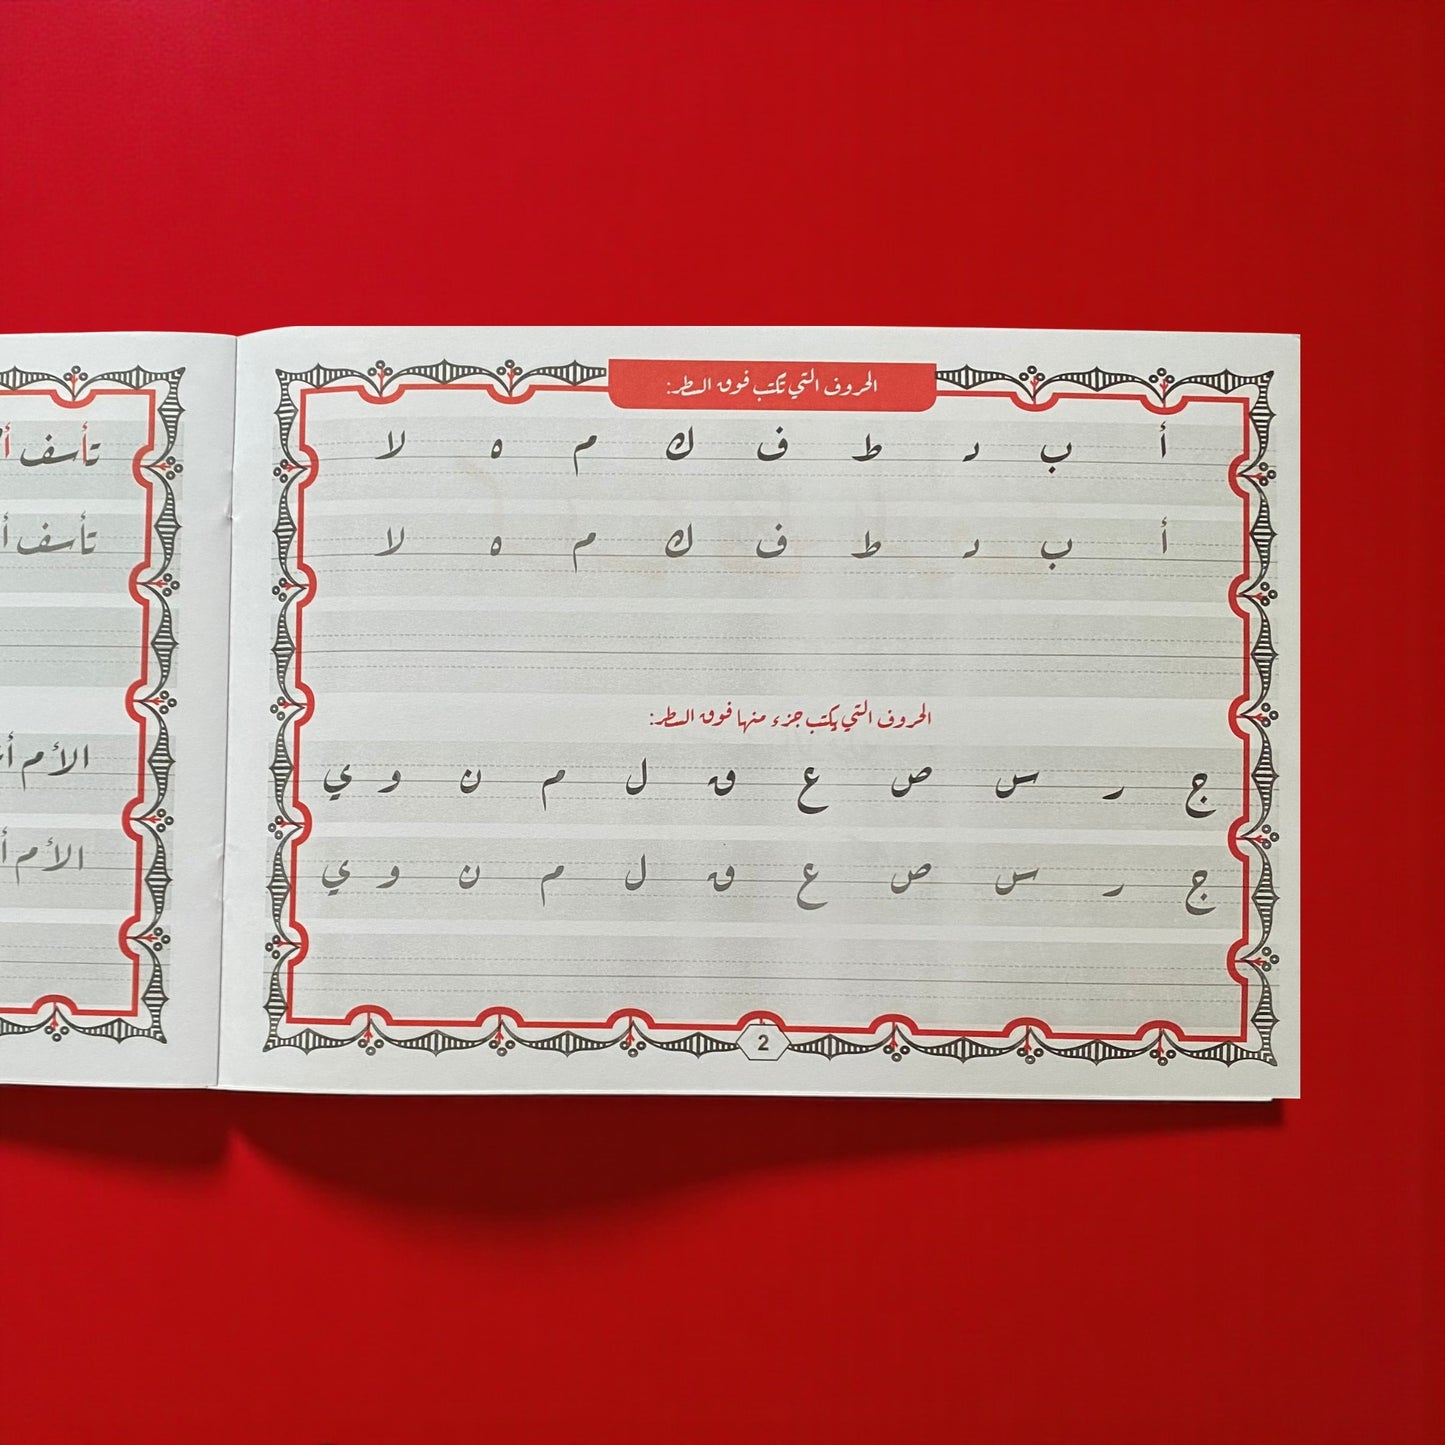 الحروف التي تكتب فوق السطر:
أ ب د ط ف ك م ه لا
أ ب د ط ف ك م ه لا
الحروف التي يكتب جزء منها فوق السطر:
ج ر س ص ع ق ل م ن و ي
ج ر س ص ع ق ل م ن و ي
2
تأسف
تأسف
الأم
الأم